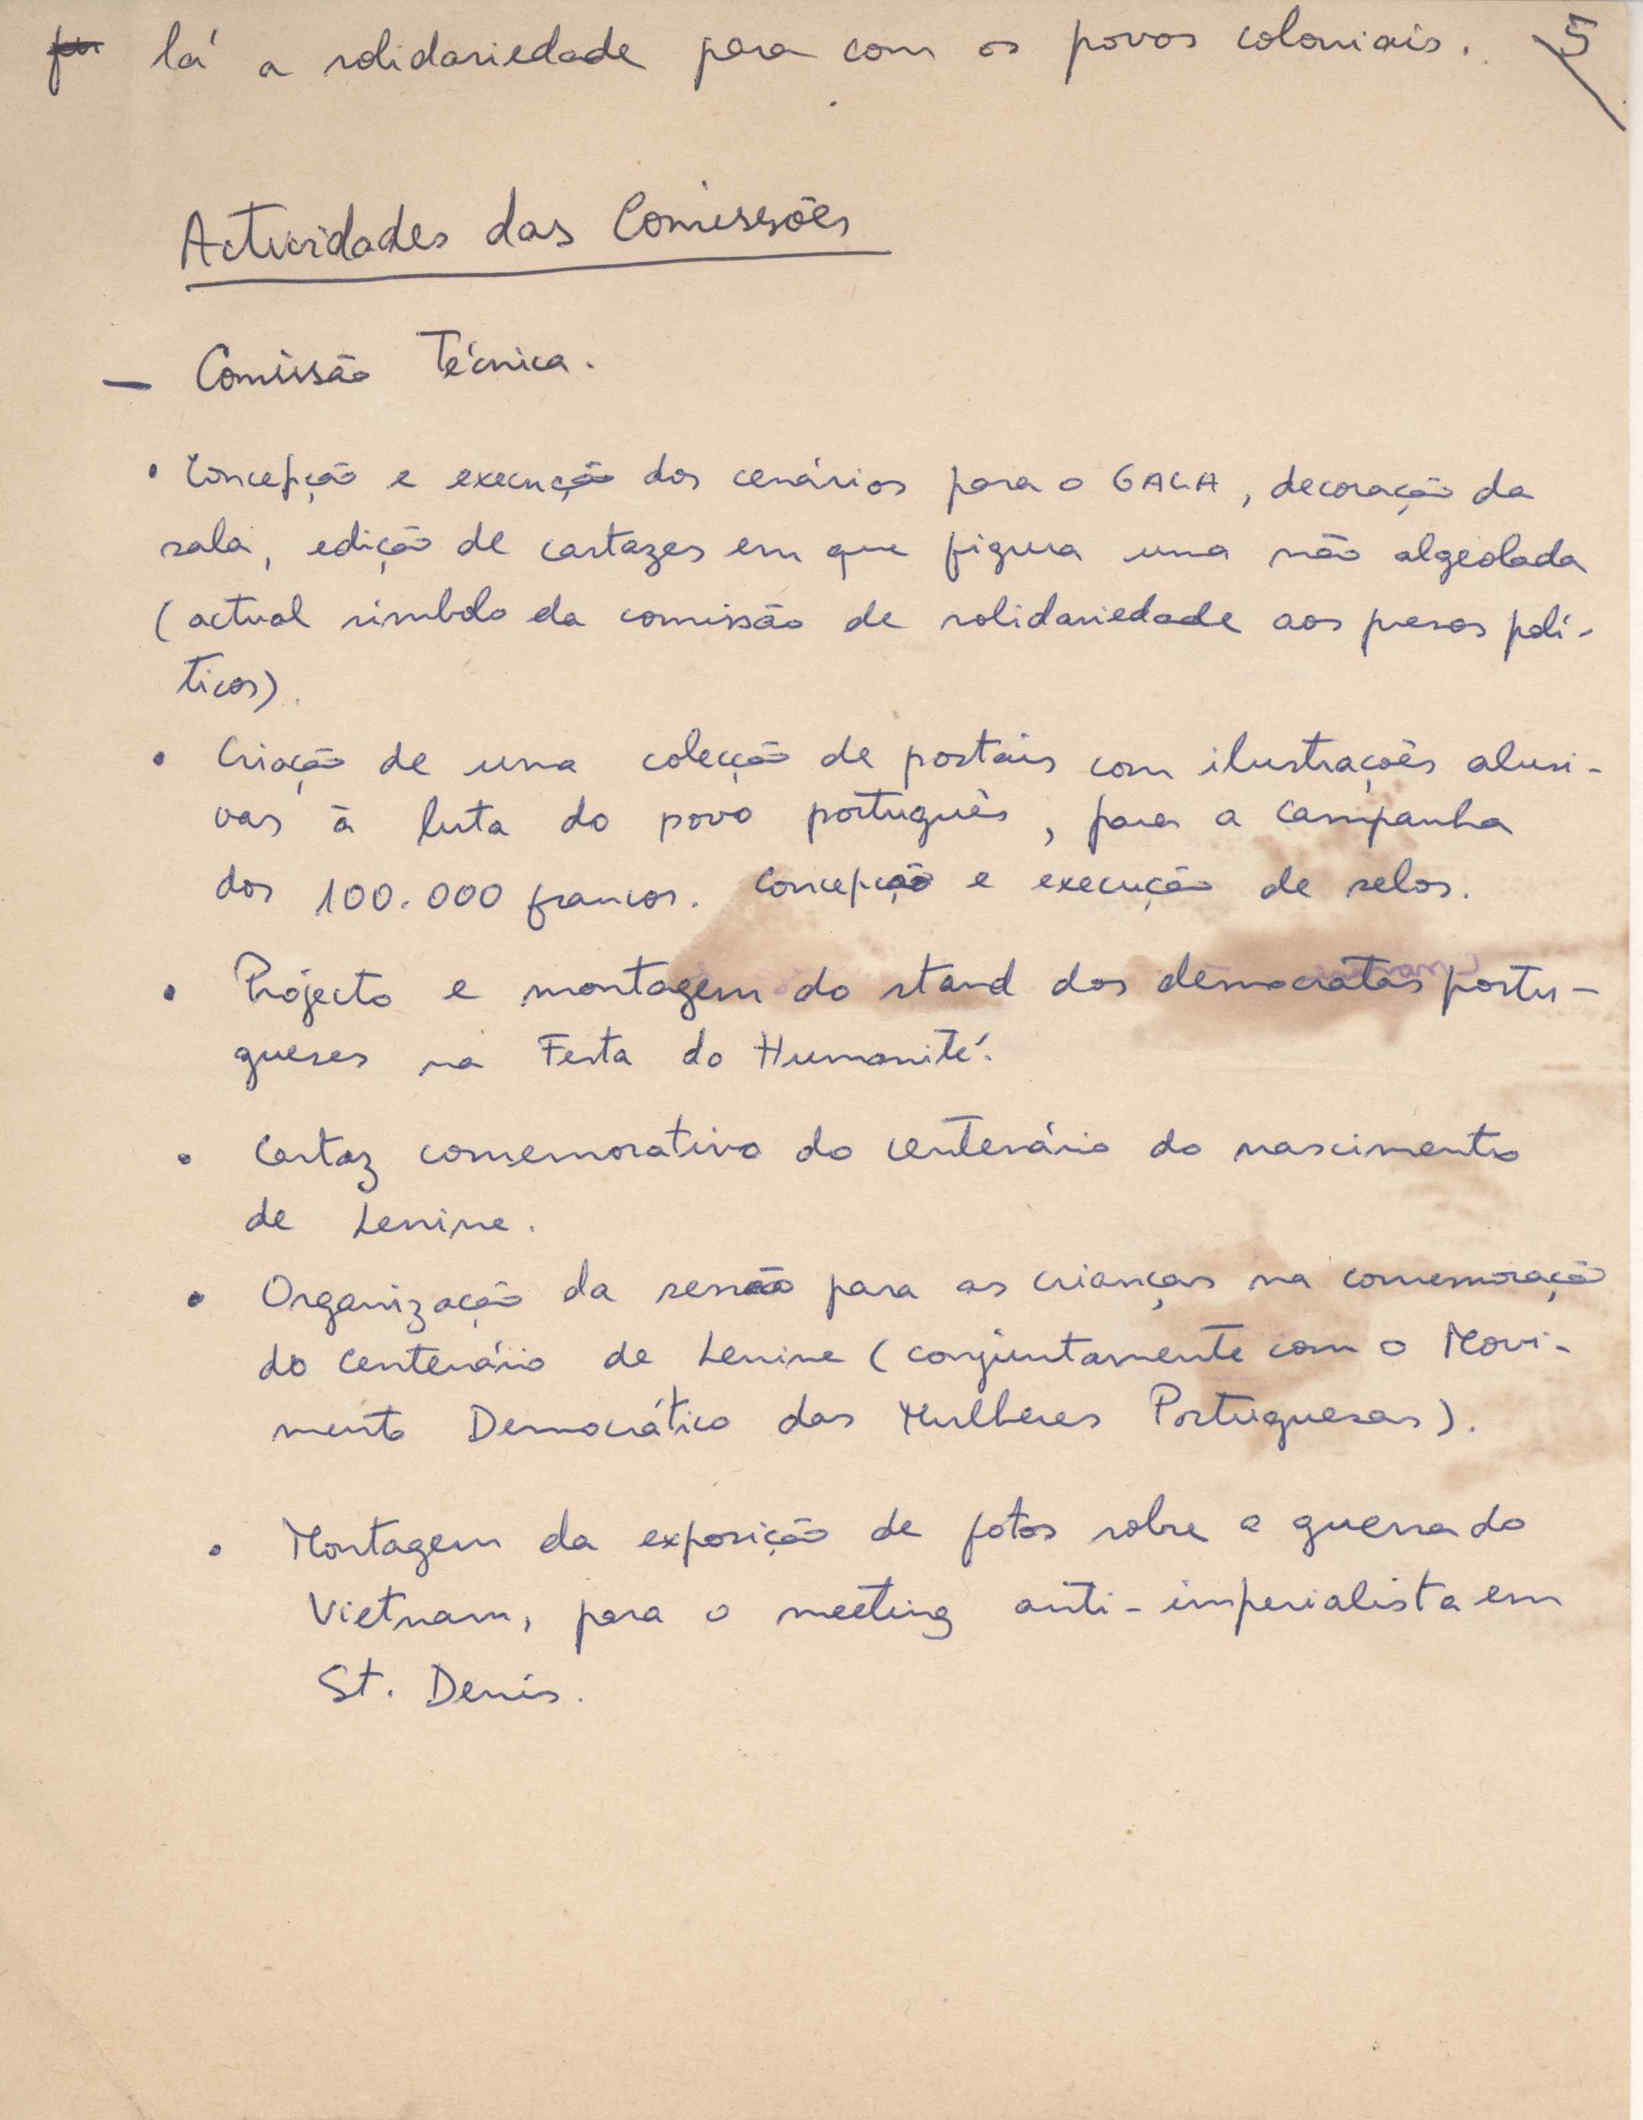 lá a solidariedade para com os povos coloniais. 5
Actividades das Comissões
— Comissão Técnica.
• Concepção e execução dos cenários para o GALA, decoração da
sala, edição de cartazes em que figura uma mão algeolada
(actual símbolo da comissão de solidariedade aos presos polí-
ticos).
• Criação de uma colecção de postais com ilustrações alusi-
vas à luta do povo português, para a campanha
dos 100.000 francos. Concepção e execução de selos.
• Projecto e montagem do stand dos democratas portu-
gueses na Festa do Humanité.
• Cartaz comemorativo do centenário do nascimento
de Lenine.
• Organização da sessão para as crianças na comemoração
do centenário de Lenine (conjuntamente com o Movi-
mento Democrático das Mulheres Portuguesas).
• Montagem da exposição de fotos sobre a guerra do
Vietnam, para o meeting anti-imperialista em
St. Denis.